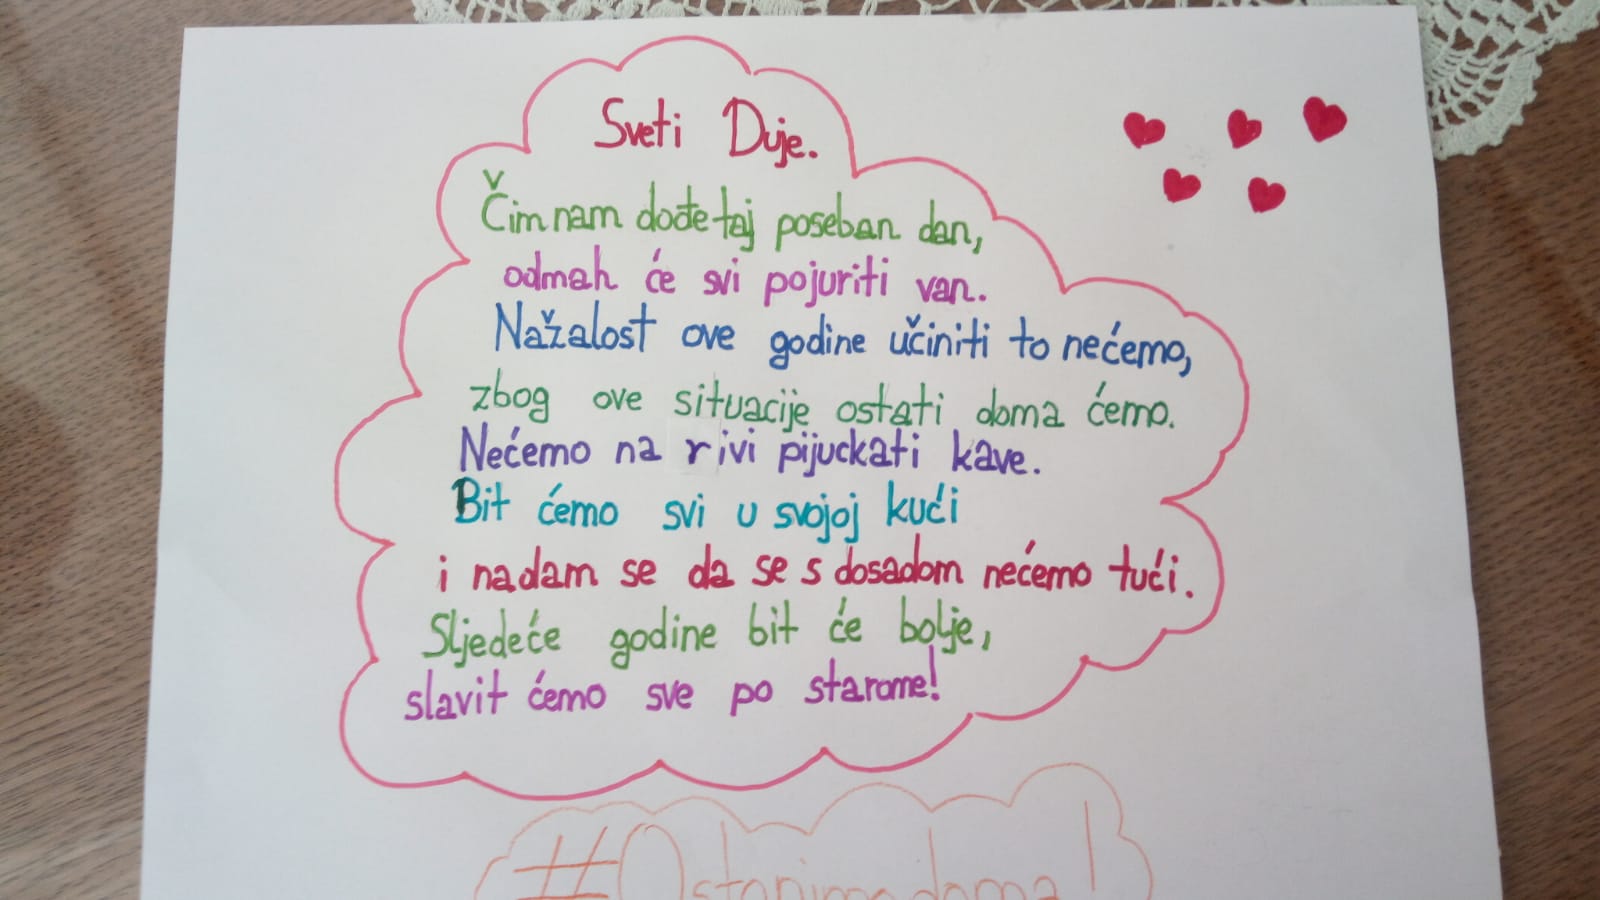 Sveti Duje.
Čim nam dođe taj poseban dan,
odmah će svi pojuriti van.
Nažalost ove godine učiniti to nećemo,
zbog ove situacije ostati doma ćemo.
Nećemo na rivi pijuckati kave.
Bit ćemo svi u svojoj kući
i nadam se da se s dosadom nećemo tući.
Sljedeće godine bit će bolje,
slavit ćemo sve po starome!
#Ostanimo doma!